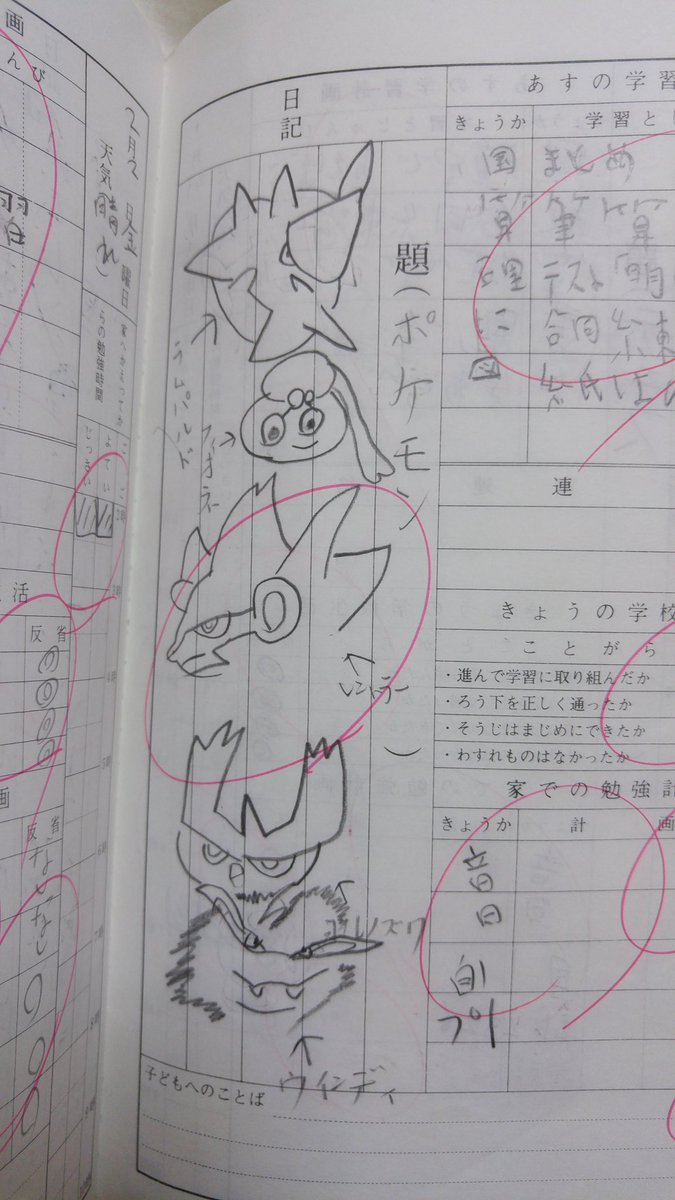 画
んび
2月2日金曜日
天気(晴れ)
家へかえってからの勉強時間
よてい
じっさい
活
反省
画
反省
なし
なし
日記
題(ポケモン)
ラムパルド
フィオネ
レントラー
ヨルノズク
ウインディ
子どもへのことば
あすの学習
きょうか
学習と
国 まとめ
算 筆計算
理 テスト「明
図
連
きょうの学校
ことがら
・進んで学習に取り組んだか
・ろう下を正しく通ったか
・そうじはまじめにできたか
・わすれものはなかったか
家での勉強計
きょうか
計
画
音
日
自
プリ